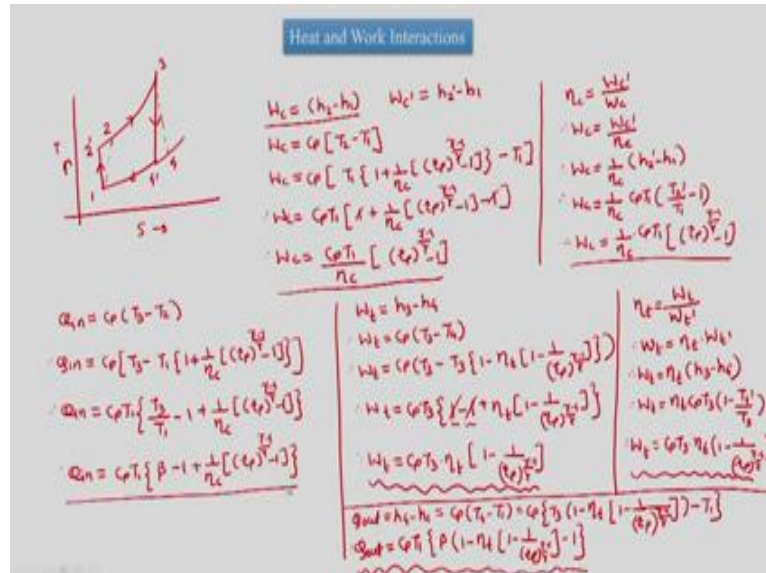 Heat and Work Interactions
3
2
2'
T
1
4'
4
S →
W_c = (h_2-h_1) W_c' = h_2'-h_1
W_c = C_P[T_2-T_1]
W_c = C_P[T_1{1+\frac{1}{η_c}[(r_p)^{\frac{γ-1}{γ}}-1]}-T_1]
∴ W_c = C_PT_1[1+\frac{1}{η_c}[(r_p)^{\frac{γ-1}{γ}}-1]-1]
∴ W_c = \frac{C_PT_1}{η_c}[(r_p)^{\frac{γ-1}{γ}}-1]
η_c = \frac{W_c'}{W_c}
∴ W_c = \frac{W_c'}{η_c}
∴ W_c = \frac{1}{η_c}(h_2'-h_1)
∴ W_c = \frac{1}{η_c}C_PT_1(\frac{T_2'}{T_1}-1)
∴ W_c = \frac{1}{η_c}C_PT_1[(r_p)^{\frac{γ-1}{γ}}-1]
Q_in = C_P(T_3-T_2)
∴ Q_in = C_P[T_3-T_1{1+\frac{1}{η_c}[(r_p)^{\frac{γ-1}{γ}}-1]}]
∴ Q_in = C_PT_1{\frac{T_3}{T_1}-1+\frac{1}{η_c}[(r_p)^{\frac{γ-1}{γ}}-1]}
∴ Q_in = C_PT_1{β-1+\frac{1}{η_c}[(r_p)^{\frac{γ-1}{γ}}-1]}
W_t = h_3-h_4
∴ W_t = C_P(T_3-T_4)
∴ W_t = C_P(T_3-T_3{1-η_t[1-\frac{1}{(r_p)^{\frac{γ-1}{γ}}}]})
∴ W_t = C_PT_3{1-1+η_t[1-\frac{1}{(r_p)^{\frac{γ-1}{γ}}}]}
∴ W_t = C_PT_3 η_t[1-\frac{1}{(r_p)^{\frac{γ-1}{γ}}}]
η_t = \frac{W_t}{W_t'}
∴ W_t = η_t·W_t'
∴ W_t = η_t(h_3-h_4')
∴ W_t = η_tC_PT_3(1-\frac{T_4'}{T_3})
∴ W_t = C_PT_3 η_t(1-\frac{1}{(r_p)^{\frac{γ-1}{γ}}})
Q_out = h_4-h_1 = C_P(T_4-T_1) = C_P{T_3(1-η_t[1-\frac{1}{(r_p)^{\frac{γ-1}{γ}}}])-T_1}
Q_out = C_PT_1{β(1-η_t[1-\frac{1}{(r_p)^{\frac{γ-1}{γ}}}]-1}